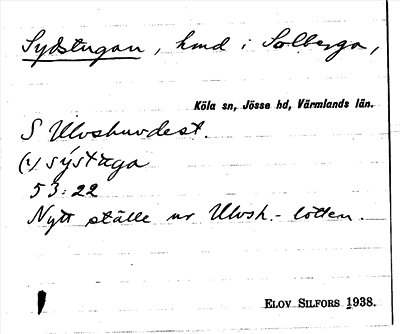 Sydstugan, hmd i Solberga,
Köla sn, Jösse hd, Värmlands län.
S Ulvshuvdest.
(i) sýstuga
53:22
Nytt ställe ur Ulvsh.-lotten.
ELOV SILFORS 1938.